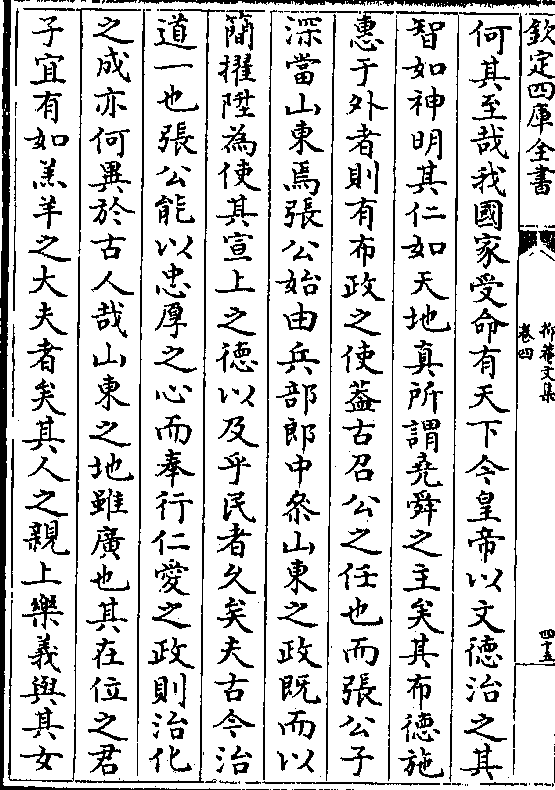 欽定四庫全書
抑菴文集
卷四
四十五
何其至哉我國家受命有天下今皇帝以文德治之其
智如神明其仁如天地真所謂堯舜之主矣其布德施
惠于外者則有布政之使蓋古召公之任也而張公子
深當山東焉張公始由兵部郎中叅山東之政既而以
簡擢陞為使其宣上之德以及乎民者久矣夫古今治
道一也張公能以忠厚之心而奉行仁愛之政則治化
之成亦何異於古人哉山東之地雖廣也其在位之君
子宜有如羔羊之大夫者矣其人之親上樂義與其女